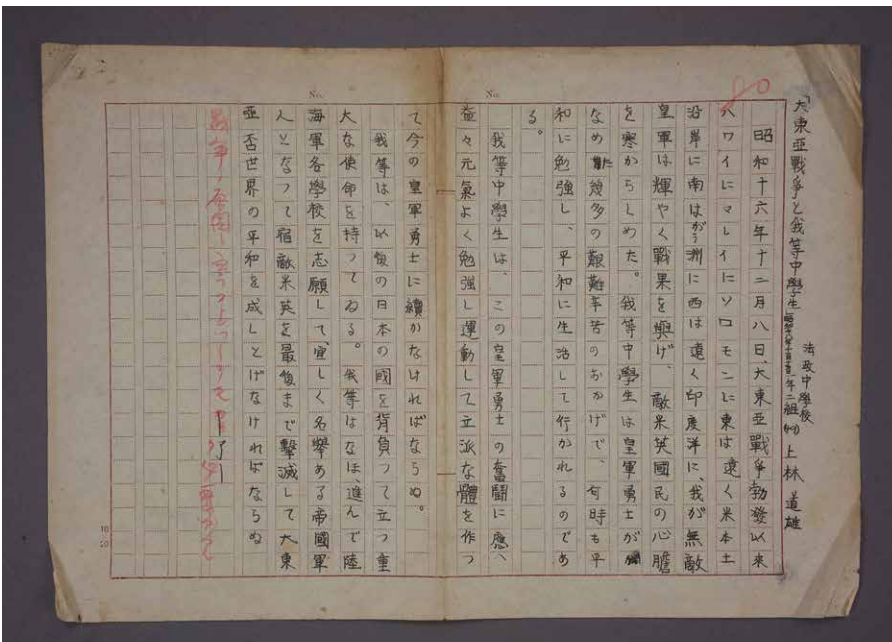 「大東亜戰爭と我等中學生
法政中學校
一年二組
上林道雄
90
昭和十六年十二月八日、大東亜戰爭勃發以来
ハワイにマレイにソロモンに東は遠く米本土
沿岸に南はがう洲に西は遠く印度洋に、我が無敵
皇軍は輝やく戰果を興げ、敵米英國民の心膽
を寒からしめた。我等中學生は皇軍勇士が
なめた幾多の艱難辛苦のおかげで、何時も平
和に勉強し、平和に生活して行かれるのであ
る。
我等中學生は、この皇軍勇士の奮闘に應へ、
益々元氣よく勉強し運動して立派な體を作つ
て今の皇軍勇士に續かなければならぬ。
我等は、以後の日本の國を背負つて立つ重
大な使命を持つてゐる。我等はなほ、進んで陸
海軍各學校を志願して、宜しく名譽ある帝國軍
人となつて宿敵米英を最後まで擊滅して大東
亜否世界の平和を成しとげなければならぬ
—了—
No.
No.
10
20